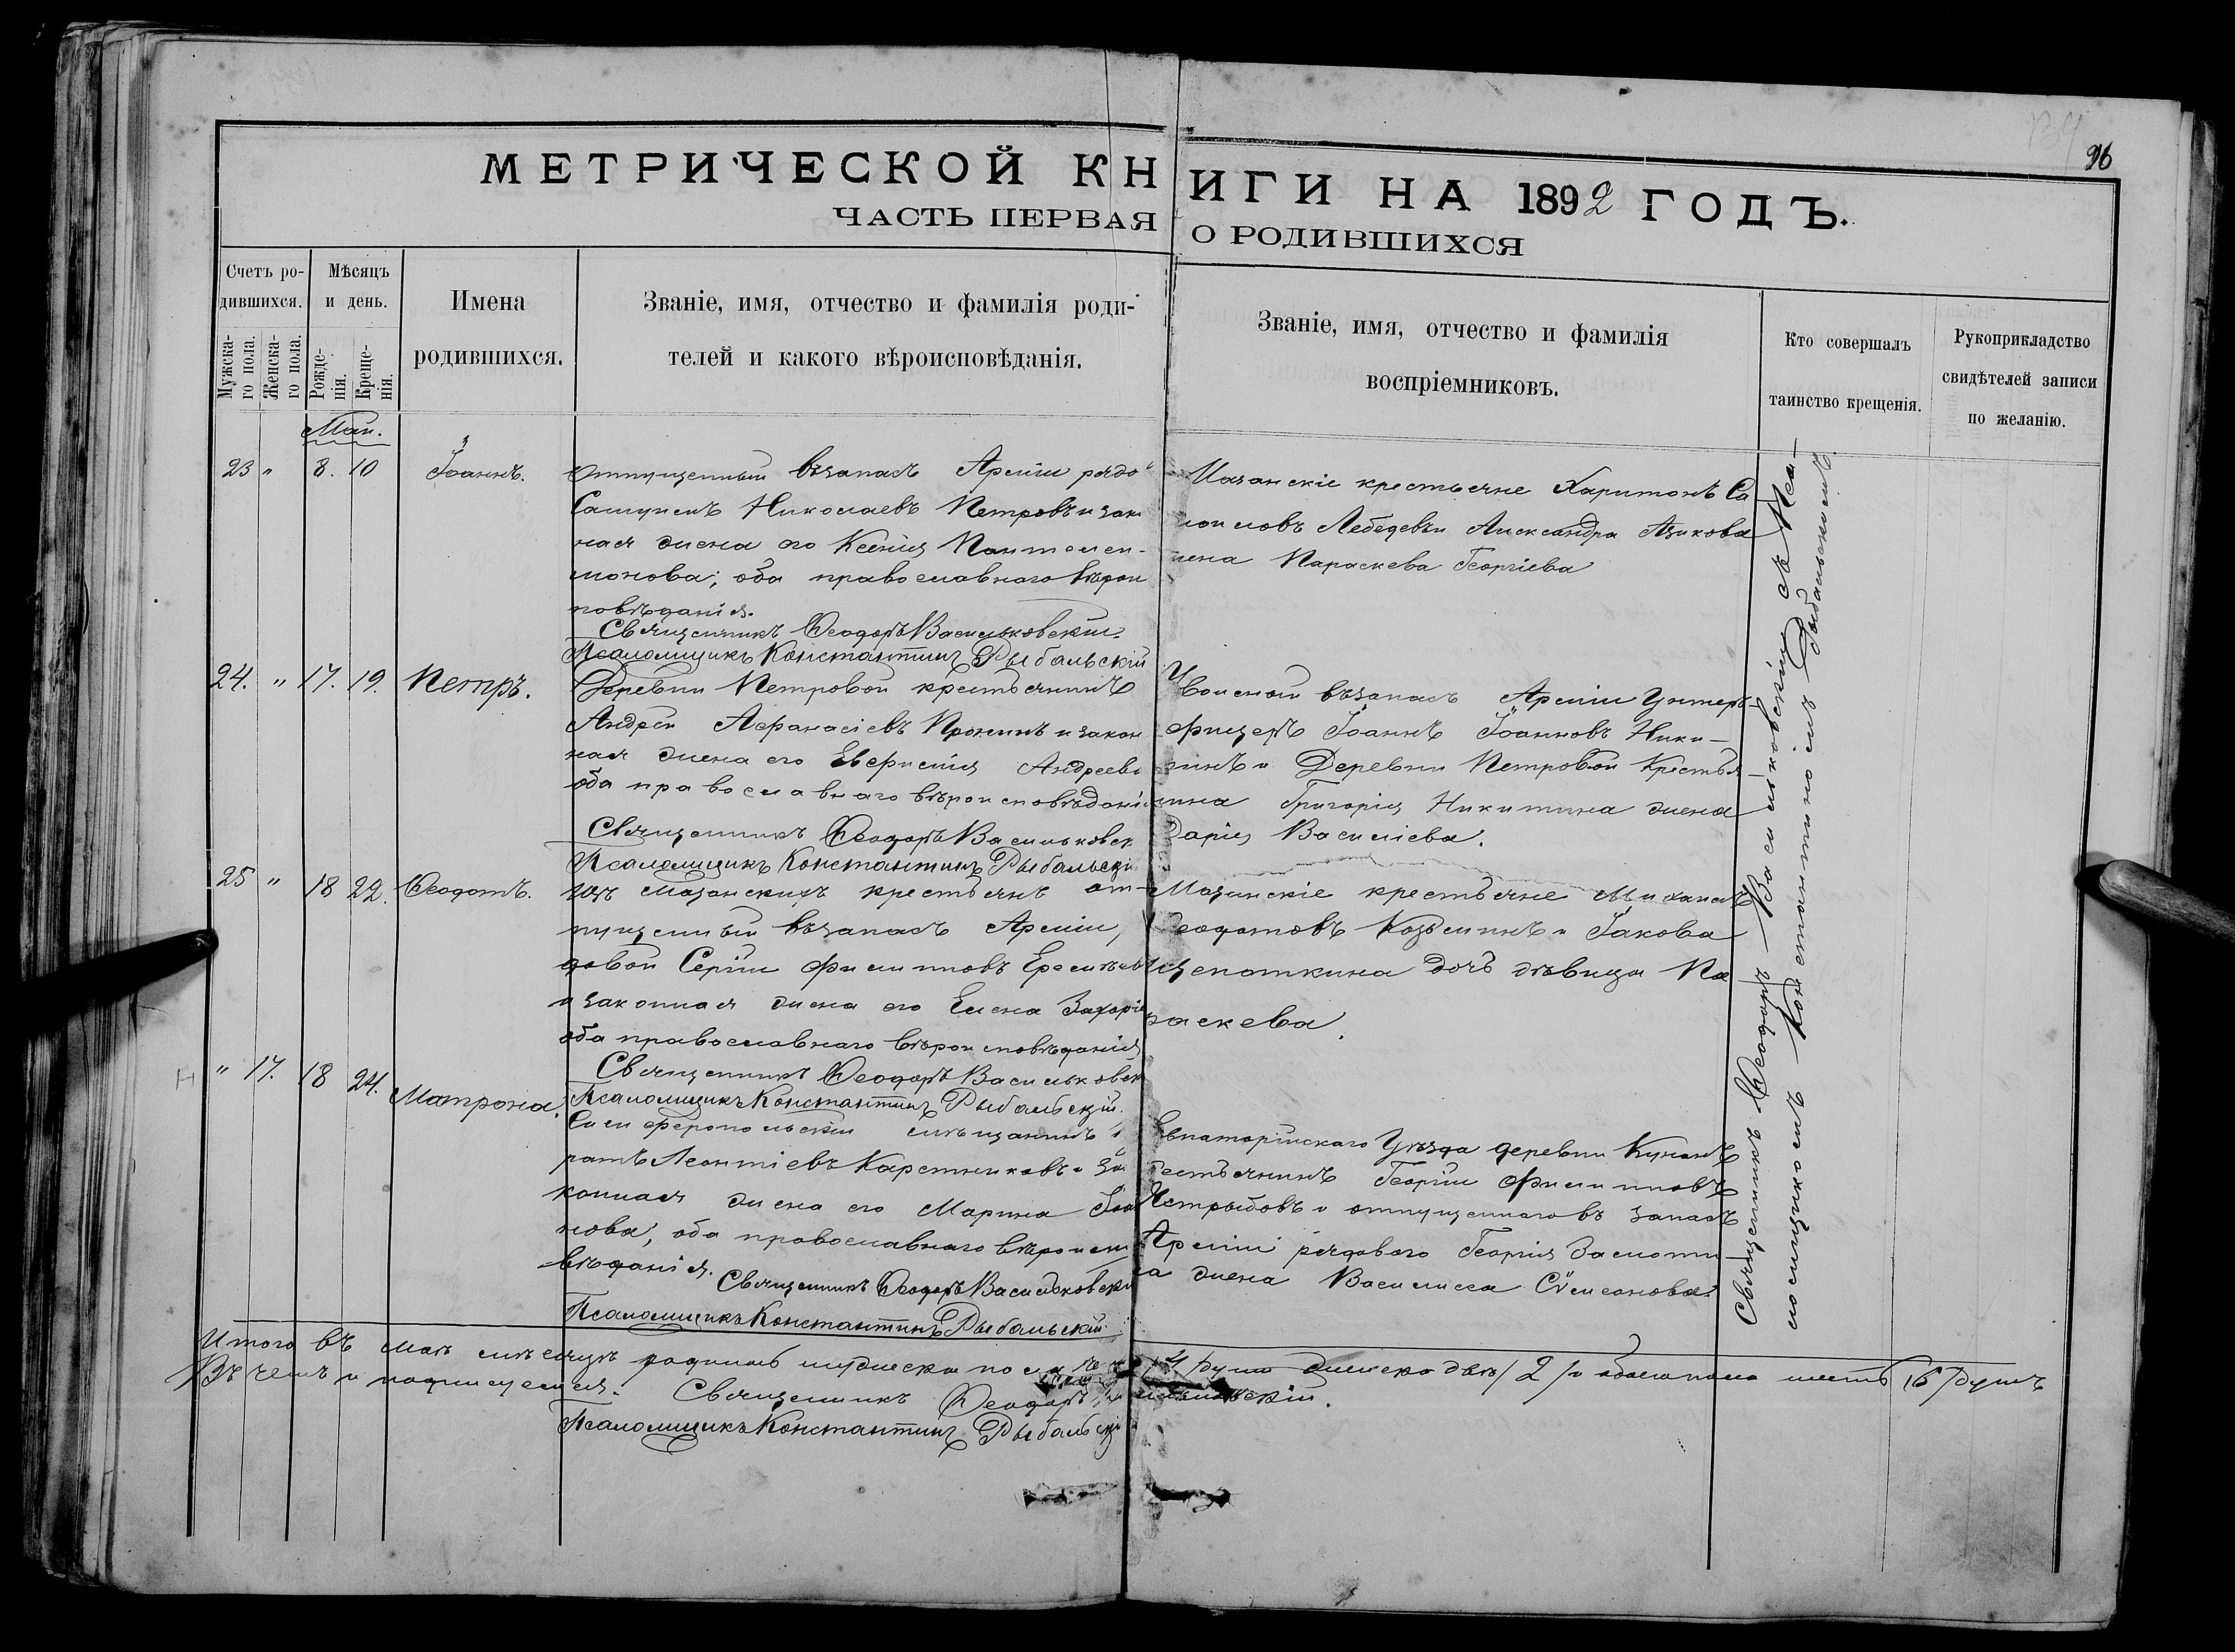 96
МЕТРИЧЕСКОЙ КНИГИ НА 1892 ГОДЪ.
ЧАСТЬ ПЕРВАЯ О РОДИВШИХСЯ
Счетъ родившихся.
Мужскаго пола.
Женскаго пола.
Мѣсяцъ и день.
Рожденія.
Крещенія.
Имена родившихся.
Званіе, имя, отчество и фамилія родителей и какого вѣроисповѣданія.
Званіе, имя, отчество и фамилія воспріемниковъ.
Кто совершалъ таинство крещенія.
Рукоприкладство свидѣтелей записи по желанію.
Май.
23 " 8. 10 Іоаннъ.
отпущенный въ запасъ Арміи рядо
Самуилъ Николаевъ Петровъ и зако
ная жена его Ксенія Пантелеи-
монова; оба православнаго вѣрои
повѣданія.
Священникъ Ѳеодоръ Васильковскій.
Псаломщикъ Константинъ Рыбальскій
Мазанскіе крестьяне Харитонъ Са
Лебедевъ и Александра Азикова
жена Параскева Георгіева
24. " 17. 19. Петръ.
Деревни Петровой крестьянинъ
Андрей Афанасіевъ Пронинъ и закон
ная жена его Евфимія Андреева
оба православнаго вѣроисповѣдані
Священникъ Ѳеодоръ Васильковск
Псаломщикъ Константинъ Рыбальскі
Уволеный въ запасъ Арміи Унтеръ-
фицеръ Іоаннъ Іоанновъ Ники-
тинъ и Деревни Петровой Крестья
нина Григорія Никитина жена
Дарія Василіева.
25 " 18 22. Ѳеодотъ.
изъ мазанскихъ крестьянъ от-
пущенный въ запасъ Арміи,
довой Сергій Филипповъ
и законная жена его Елена Захарі
оба православнаго вѣроисповѣданія
Священникъ Ѳеодоръ Васильковск
Псаломщикъ Константинъ Рыбальскій.
Мазанскіе крестьяне Михаилъ
Ѳеодотовъ Козьминъ и Іакова
Щепоткина дочь дѣвица Па
раскева.
" 17. 18 24. Матрона.
Симферопольскій мѣщанинъ
ратъ Леонтіевъ Карстниковъ и за
конная жена его Марина Іоа
нова, оба православнаго вѣроиспо
вѣданія.
Священникъ Ѳеодоръ Васильковскі
Псаломщикъ Константинъ Рыбальскій
Евпаторійскаго Уѣзда деревни
рестьянинъ Георгій Филипповъ
Ястребовъ и отпущеннаго въ запасъ
Арміи рядового Георгія
а жена Василисса Сѵмеонова.
Священникъ Ѳеодоръ Васильковскій съ Псаломщикомъ Константиномъ Рыбальскимъ.
Итого въ маѣ мѣсяцѣ родилось мужеска пола душъ женска двѣ /2/ и обоего пола шесть /6/ душъ
Въ чемъ и подписуемся. Священникъ Ѳеодоръ Васильковскій.
Псаломщикъ Константинъ Рыбальскі